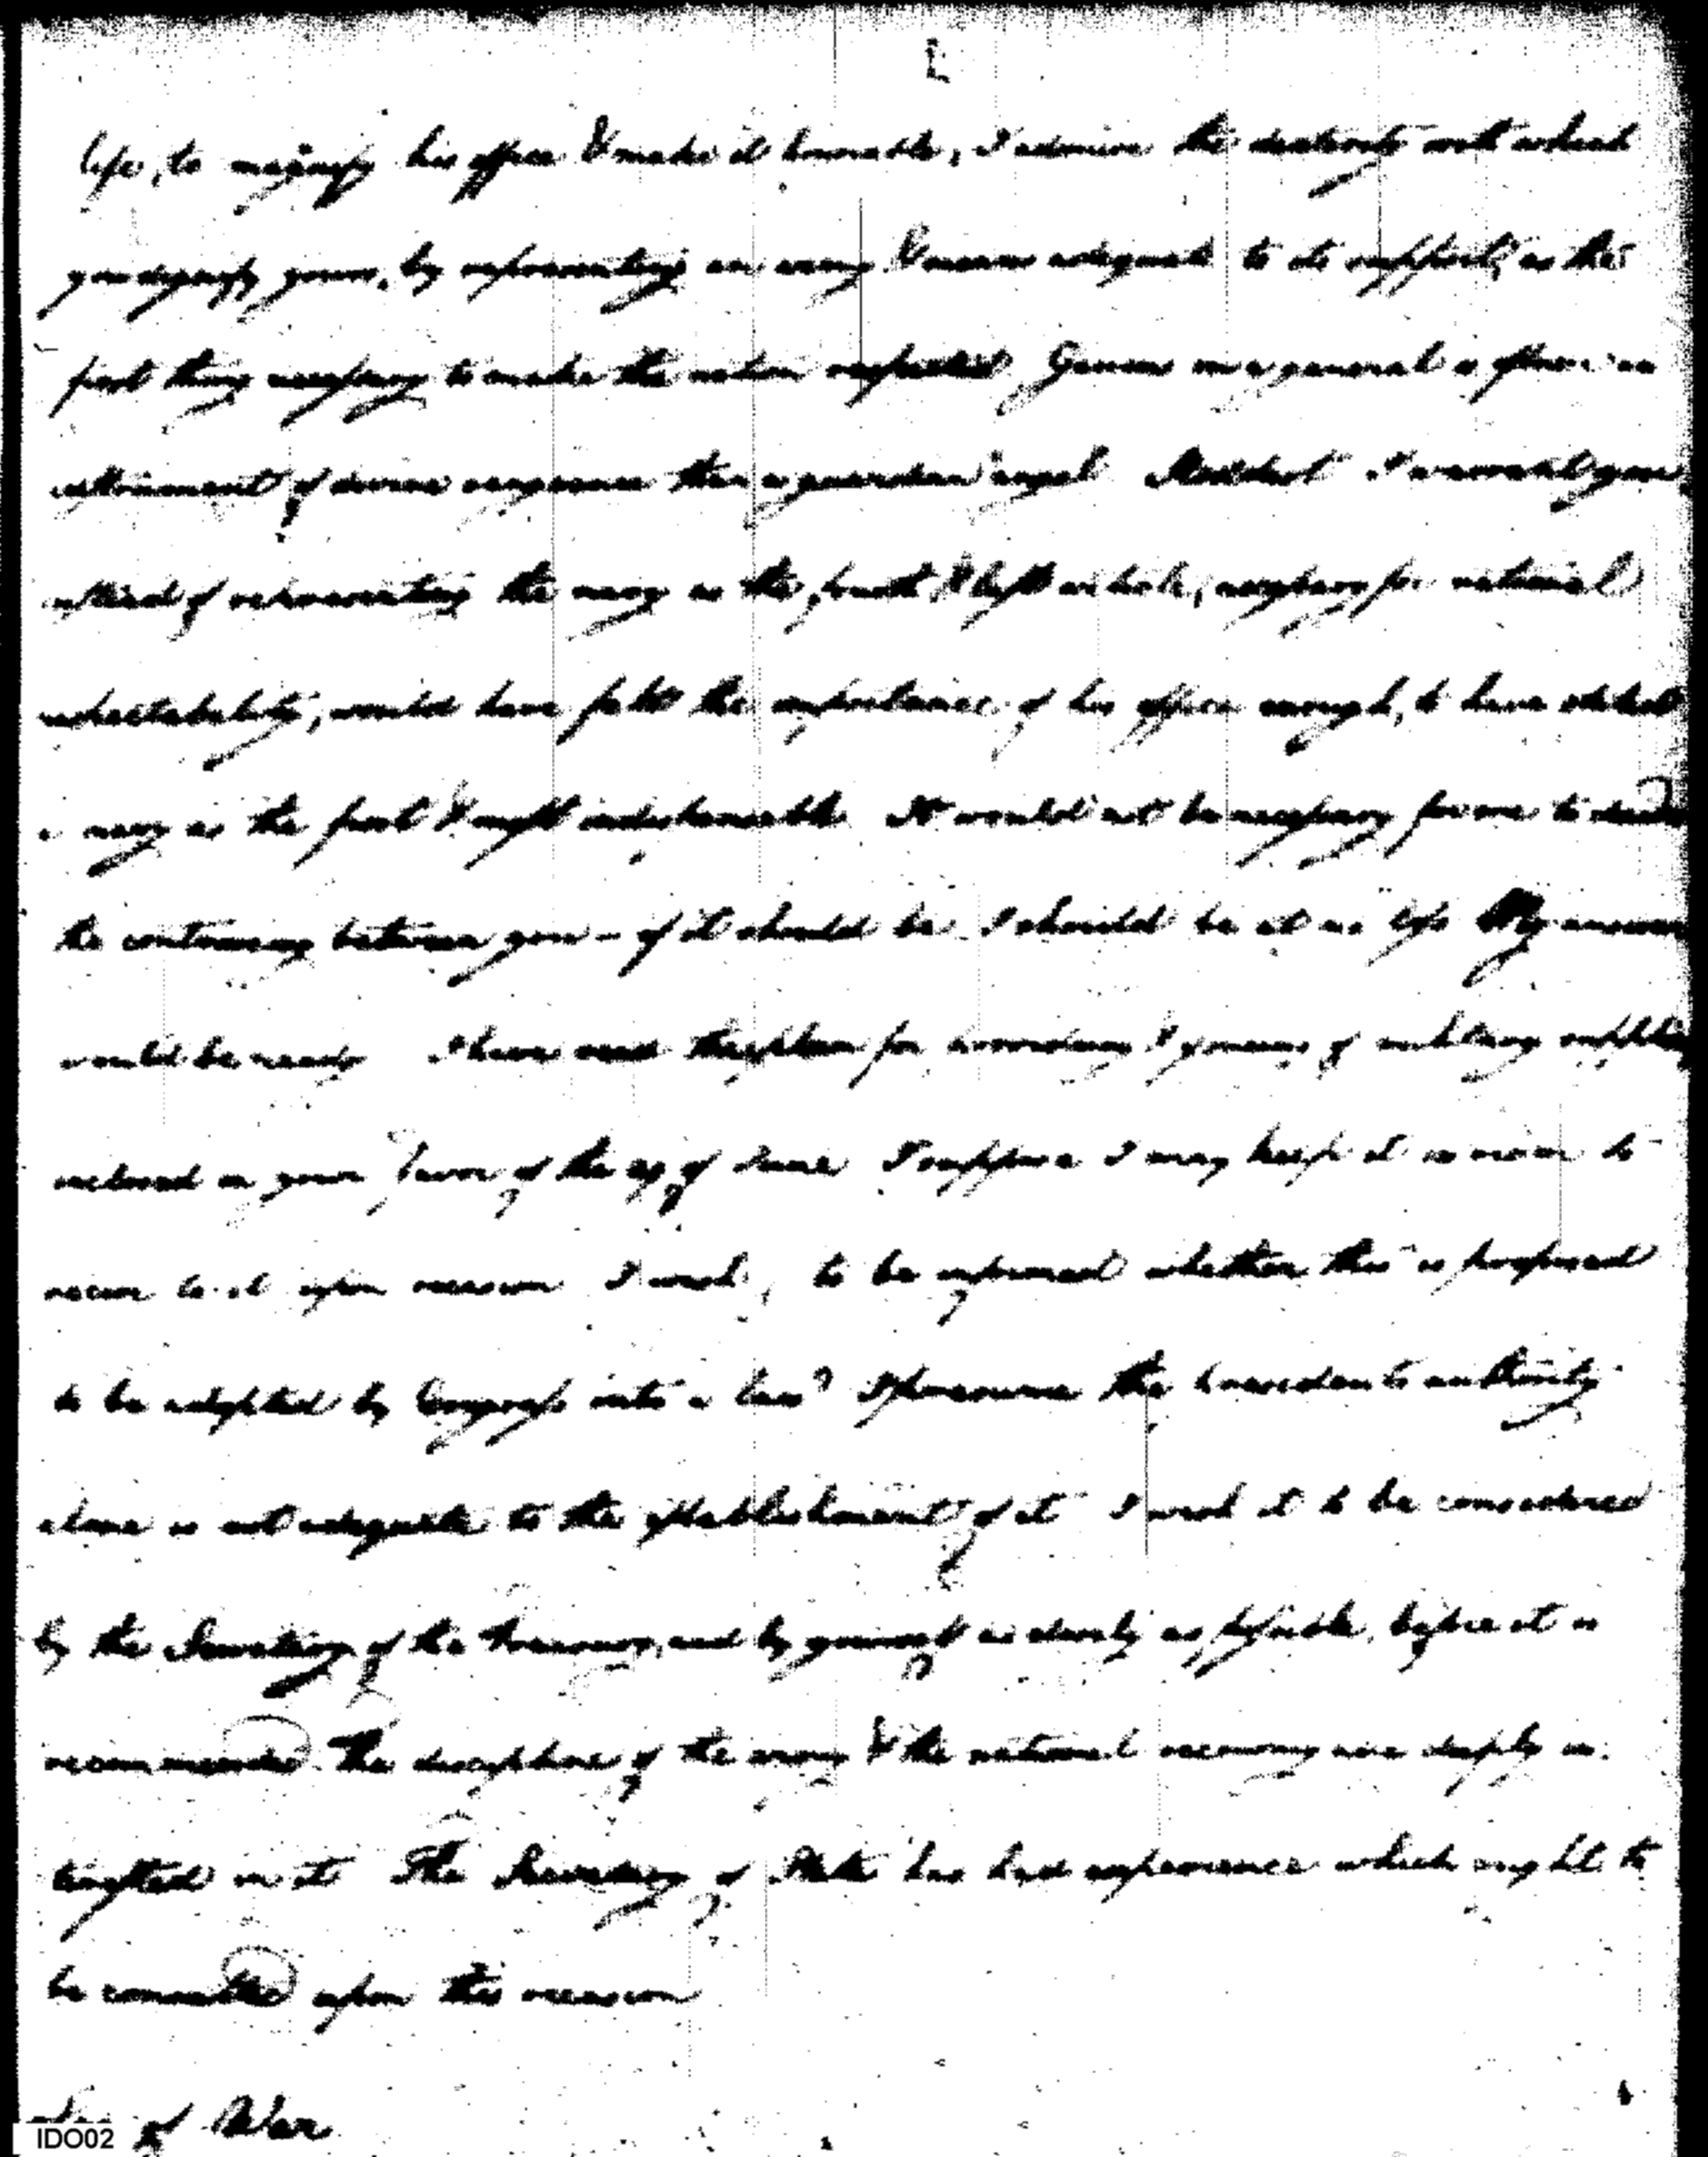 life, to magnify his office & make it honorable, I admire the dexterity with which
you dignify yours, by representing an army & means adequate to its support, as the
first thing necessary to make the nation respected Genius in a general is oftener an
instrument of divine vengeance than a guardian angel Stoddert I warrant you
instead of representing the navy as the fourth & last article, necessary for national
respectability, would have felt the importance of his office enough, to have stated
a navy as the first & most indispensable It would not be necessary for me to decide
the controversy between you - if it should be I should be at no loss My answer
would be ready I have read the plan for & of military supplies
inclosed in your favor of the 25 of June I suppose I may keep it in order to
recur to it upon occasion I wish, to be informed whether this is proposed
to be adopted by Congress into a law? I presume the presidents authority
alone is not adequate to the establishment of it I wish it to be considered
by the Secretary of the Treasury, and by yourself as closely as possible, before it is
recommended The discipline of the army & the national economy are deeply in
terested in it The Secretary of State has had experience which ought to
be consulted upon this occasion
Sec of War
IDO02